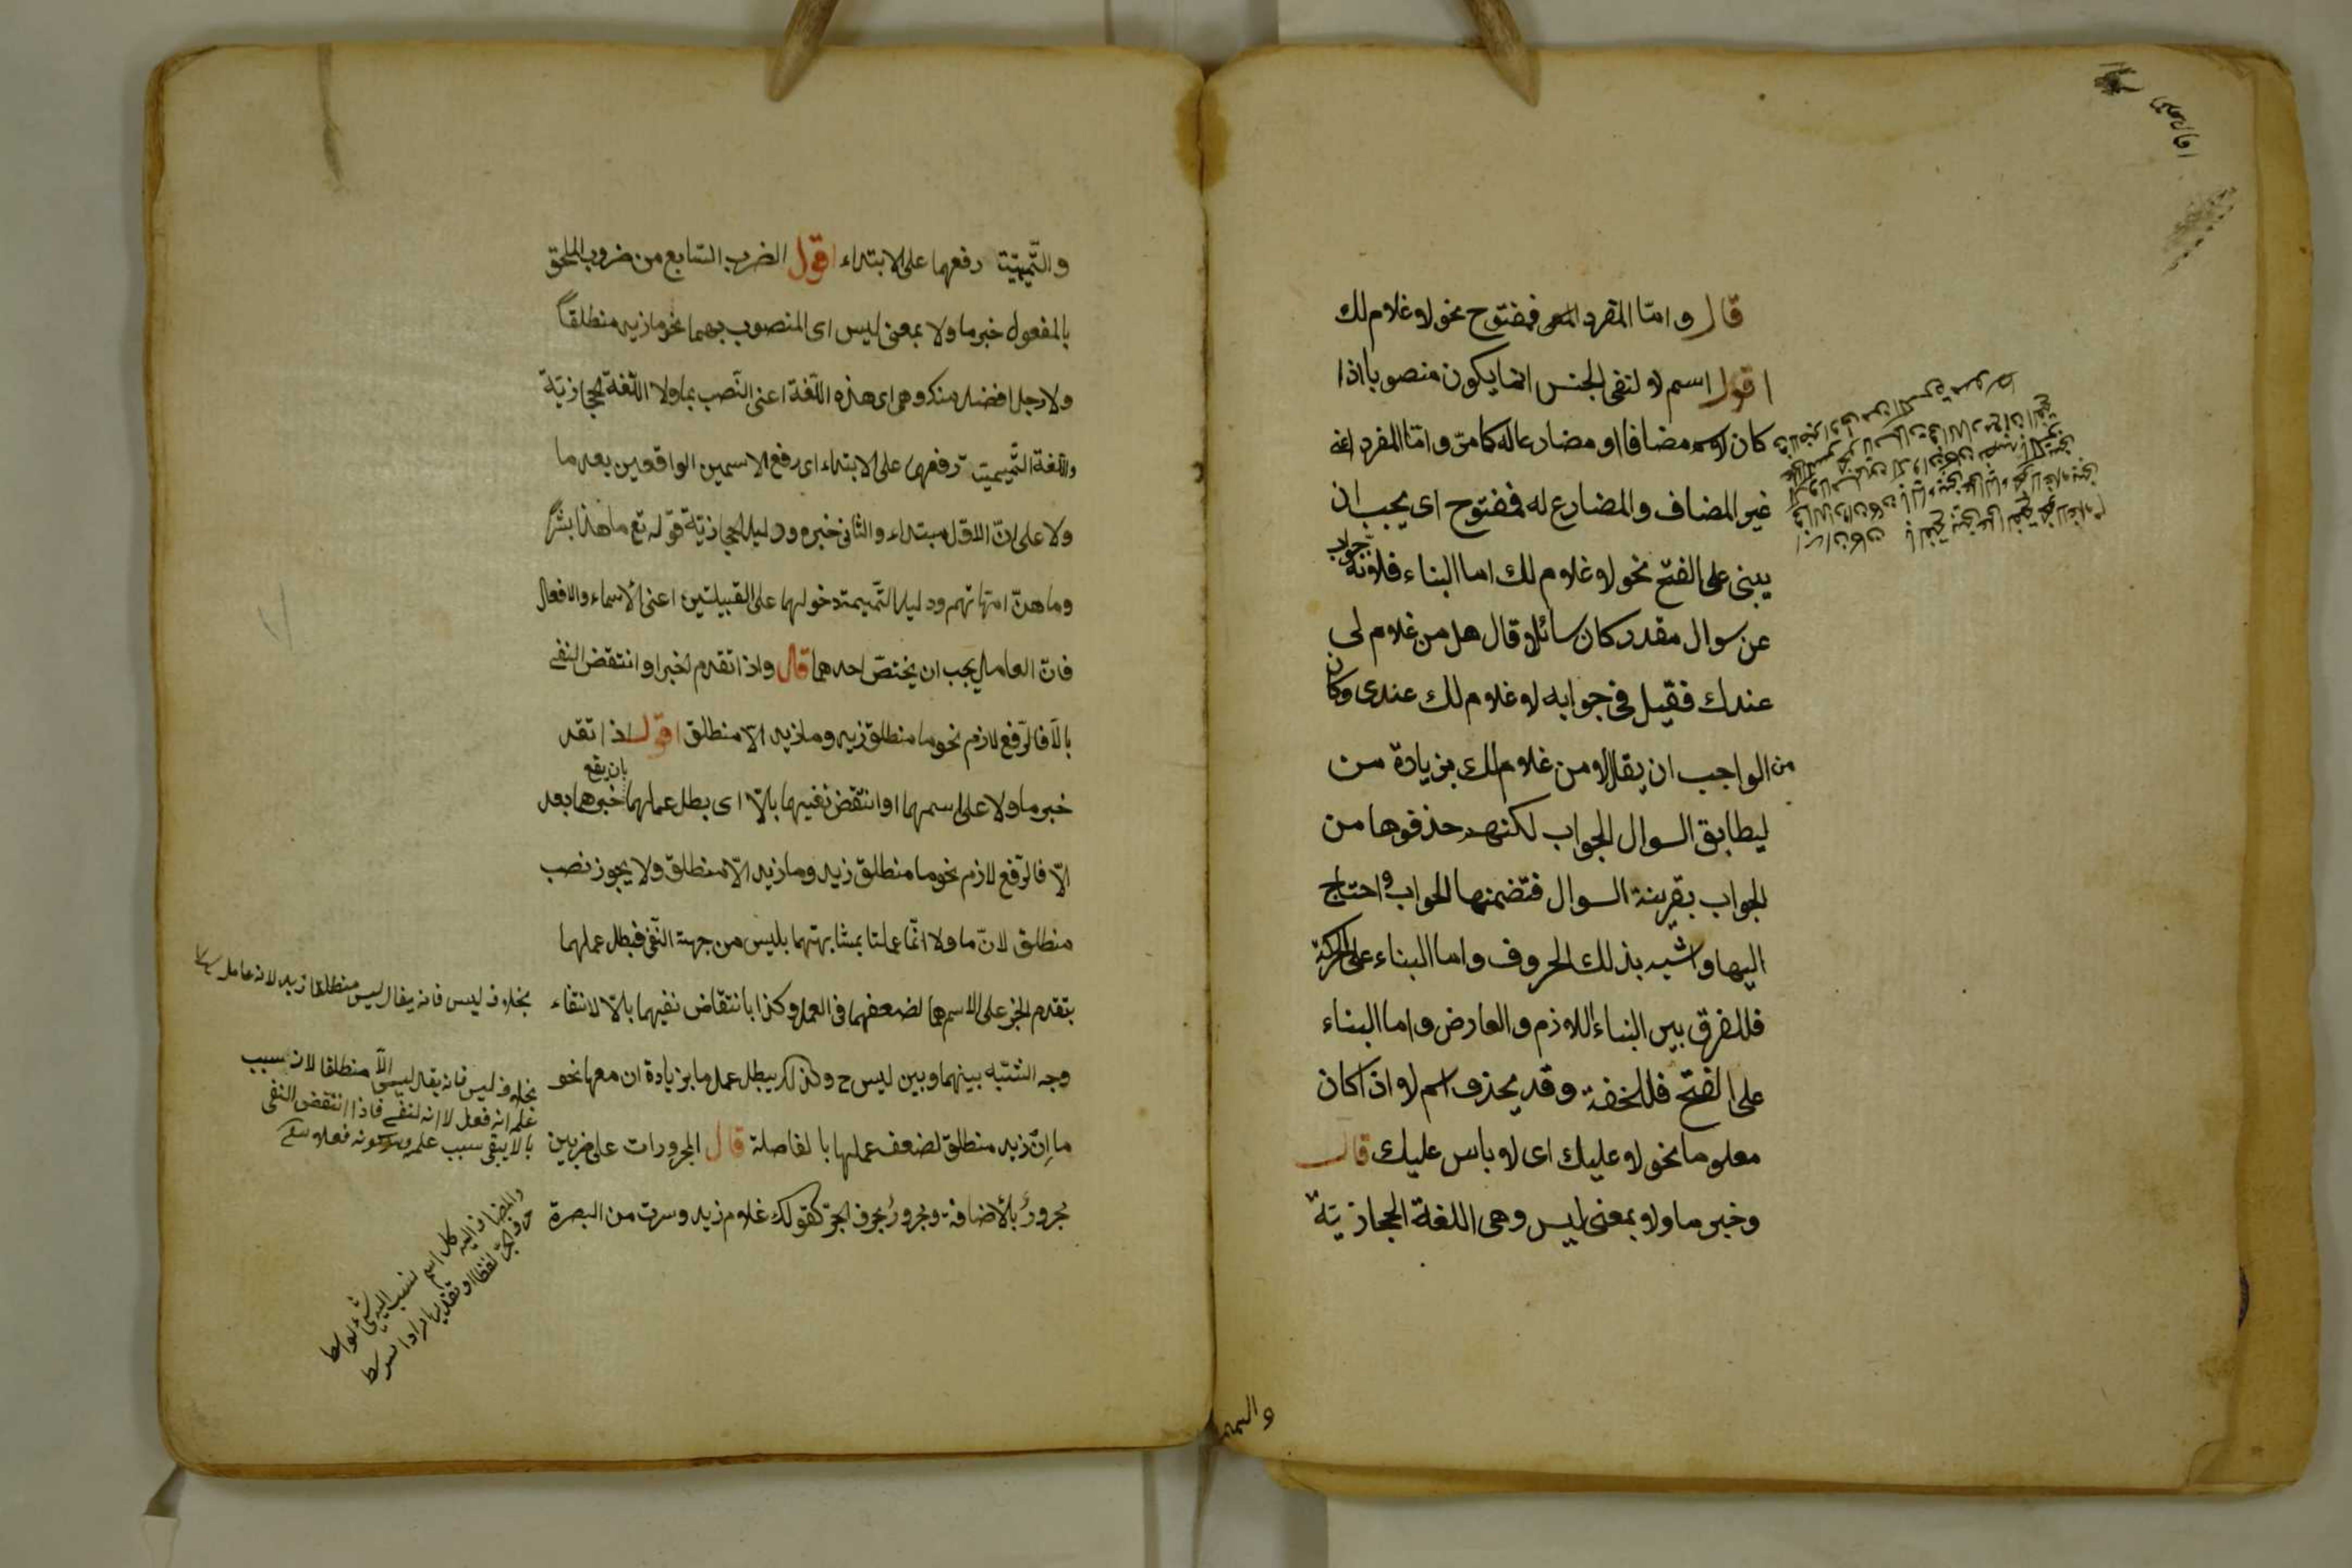 قال واما المفرد فمفتوح نحو لا غلام لك
اقول اسم لا لنفى الجنس انما يكون منصوبا اذا
كان مضافا او مضارعا له كما مرّ وامّا المفرد اعنى
غير المضاف والمضارع له فمفتوح اى يجب ان
يبنى على الفتح نحو لا غلام لك اما البناء فلانه جواب
عن سوال مقدر كان سائلا قال هل من غلام لى
عندك فقيل فى جوابه لا غلام لك عندى وكان
من الواجب ان يقال لا من غلام لك بزيادة من
ليطابق السوال الجواب لكنهم حذفوها من
الجواب بقرينة السوال فتضمنها الجواب واحتاج
اليها واشبه بذلك الحروف واما البناء على الحركة
فللفرق بين البناء اللازم والعارض واما البناء
على الفتح فللخفة وقد يحذف اسم لا اذا كان
معلوما نحو لا عليك اى لا باس عليك قال
وخبر ما ولا بمعنى ليس وهى اللغة الحجازيّة
والتميمية
والتّميميّة رفعهما على الابتداء اقول الضرب السّابع من ضروب الملحق
بالمفعول خبر ما ولا بمعنى ليس اى المنصوب بهما نحو ما زيد منطلقاً
ولا رجل افضل منك وهى اى هذه اللّغة اعنى النّصب بما ولا اللّغة الحجازيّة
واللّغة التّميميّة رفعهما على الابتداء اى رفع الاسمين الواقعين بعد ما
ولا على انّ الاوّل مبتداء والثانى خبره ودليل الحجازيّة قوله تع ما هذا بشراً
وما هنّ امّهاتهم ودليل التّميمية دخولهما على القبيلتين اعنى الاسماء والافعال
فانّ العامل يجب ان يختصّ احدهما قال واذا تقدم الخبر او انتقض النفى
بالّا فالرّفع لازم نحو ما منطلق زيد وما زيد الّا منطلق اقول اذا تقد
خبر ما ولا على اسمهما او انتقض نفيهما بالّا اى بطل عملهما بان يقع خبرهما بعد
الّا فالرّفع لازم نحو ما منطلق زيد وما زيد الّا منطلق ولا يجوز نصب
منطلق لانّ ما ولا انّما عملتا بمشابهتهما بليس من جهة النّفى فبطل عملهما
بتقدم الخبر على الاسم لضعفهما فى العمل وكذا بانتقاض نفيهما بالّا لانتفاء
وجه الشّبه بينهما وبين ليس ح وكذلك يبطل عمل ما بزيادة ان معها نحو
ما اِن زيد منطلق لضعف عملها بالفاصلة قال المجرورات على ضربين
مجرورٌ بالاضافة ومجرورٌ بحرف الجرّ كقولك غلام زيد وسرت من البصرة
بخلاف ليس فانه يقال ليس منطلقا زيد لانه عامل
بخلاف ليس فانه يقال ليس الّا منطلقا لان سبب
عمله انه فعل لا انه لنفى فاذا انتقض النفى
بالا يبقى سبب عمله
والمضاف اليه كل اسم نسب اليه شئ بواسطة
حرف الجرّ لفظا او تقديرا